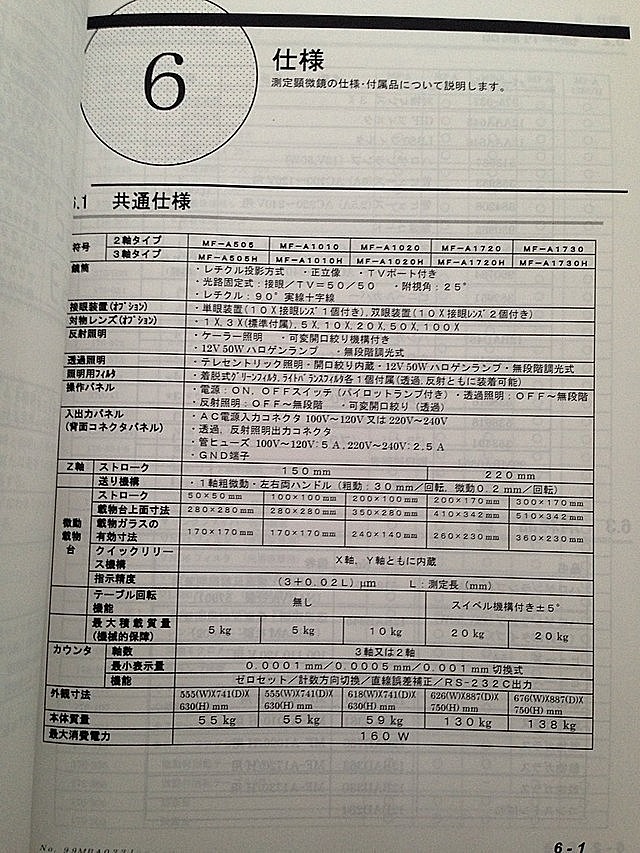 6
仕様
測定顕微鏡の仕様・付属品について説明します。
6.1 共通仕様
符号 2軸タイプ MF-A505 MF-A1010 MF-A1020 MF-A1720 MF-A1730
3軸タイプ MF-A505H MF-A1010H MF-A1020H MF-A1720H MF-A1730H
鏡筒 ・レチクル投影方式 ・正立像 ・TVポート付き
・光路固定式:接眼/TV=50/50 ・俯視角:25°
・レチクル:90°実線十字線
接眼装置(オプション) ・単眼装置(10X接眼レンズ1個付き),双眼装置(10X接眼レンズ2個付き)
対物レンズ(オプション) ・1X,3X(標準付属),5X,10X,20X,50X,100X
反射照明 ・ケーラー照明 ・可変開口絞り機構付き
・12V50Wハロゲンランプ ・無段階調光式
透過照明 ・テレセントリック照明・開口絞り内蔵・12V50Wハロゲンランプ・無段階調光式
照明用フィルタ ・着脱式グリーンフィルタ,ライトバランスフィルタ各1個付属(透過,反射ともに装着可能)
操作パネル ・電源:ON,OFFスイッチ(パイロットランプ付き)・透過照明:OFF~無段階
・反射照明:OFF~無段階 ・可変開口絞り(透過)
入出力パネル ・AC電源入力コネクタ 100V~120V又は220V~240V
(背面コネクタパネル) ・透過,反射照明出力コネクタ
・管ヒューズ 100V~120V:5A,220V~240V:2.5A
・GND端子
Z軸 ストローク 150mm 220mm
送り機構 ・1軸粗微動・左右両ハンドル(粗動:30mm/回転,微動0.2mm/回転)
微動載物台 ストローク 50×50mm 100×100mm 200×100mm 200×170mm 300×170mm
載物台上面寸法 280×280mm 280×280mm 350×280mm 410×342mm 510×342mm
載物ガラスの有効寸法 170×170mm 170×170mm 240×140mm 260×230mm 360×230mm
クイックリリース機構 X軸,Y軸ともに内蔵
指示精度 (3+0.02L)μm L:測定長(mm)
テーブル回転機能 無し スイベル機構付き±5°
最大積載質量(機械的保障) 5kg 5kg 10kg 20kg 20kg
カウンタ 軸数 3軸又は2軸
最小表示量 0.0001mm/0.0005mm/0.001mm切換式
機能 ゼロセット/計数方向切換/直線誤差補正/RS-232C出力
外観寸法 555(W)X741(D)X 555(W)X741(D)X 618(W)X741(D)X 626(W)X887(D)X 676(W)X887(D)X
630(H)mm 630(H)mm 630(H)mm 750(H)mm 750(H)mm
本体質量 55kg 55kg 59kg 130kg 138kg
最大消費電力 160W
6-1